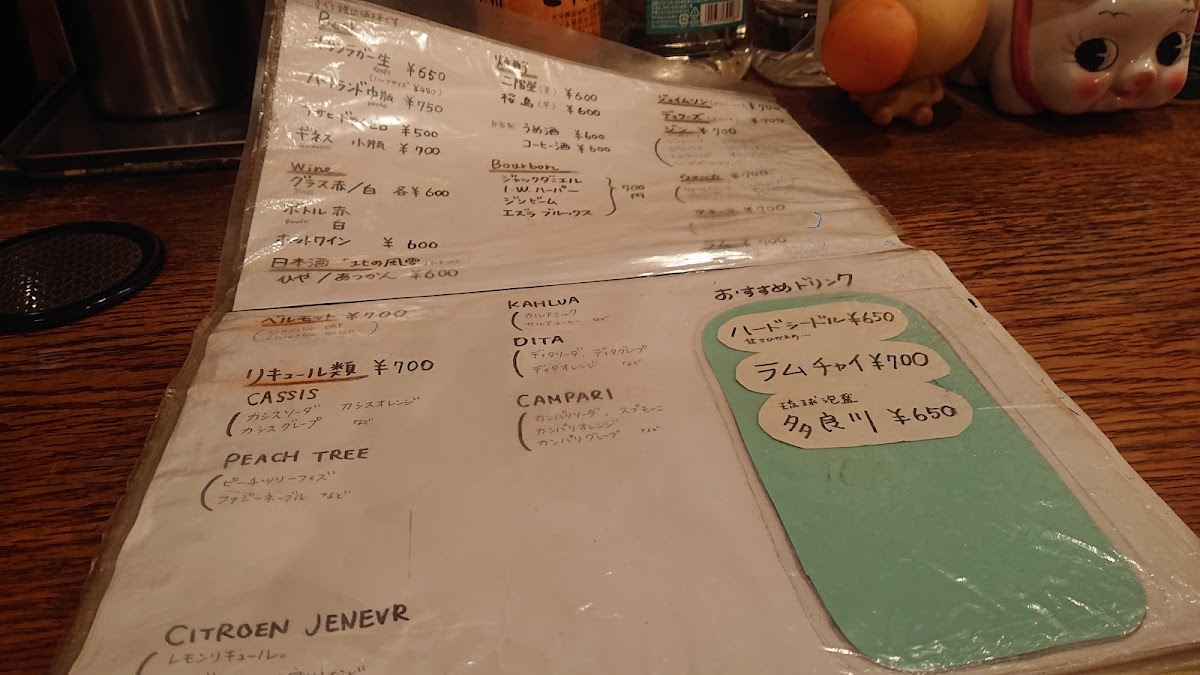 すべて税込価格です
ハートランド中瓶 ¥750
¥650
(ハーフサイズ ¥480)
¥500
ギネス 小瓶 ¥700
Wine
グラス赤/白 各¥600
ボトル 赤
白
ホットワイン ¥600
日本酒 "北の風雪"
ひや/あつかん ¥600
焼酎
二階堂(麦) ¥600
桜島(芋) ¥600
自家製 うめ酒 ¥600
コーヒー酒 ¥600
Bourbon
ジャックダニエル
I.W.ハーパー
ジンビーム
エズラブルックス
700円
ジェイムソン ¥700
デュワーズ ¥700
ジン ¥700
ウォッカ ¥700
¥700
¥700
ベルモット ¥700
リキュール類 ¥700
CASSIS
カシスソーダ カシスオレンジ
カシスグレープ など
PEACH TREE
ピーチツリーフィズ
ファジーネーブル など
CITROEN JENEVR
レモンリキュール。
KAHLUA
カルアミルク
カルアコーヒー など
DITA
ディタソーダ、ディタグレープ
ディタオレンジ など
CAMPARI
カンパリソーダ、スプモーニ
カンパリオレンジ
カンパリグレープ など
おすすめドリンク
ハードシードル ¥650
甘さひかえめ…
ラムチャイ ¥700
琉球泡盛
多良川 ¥650